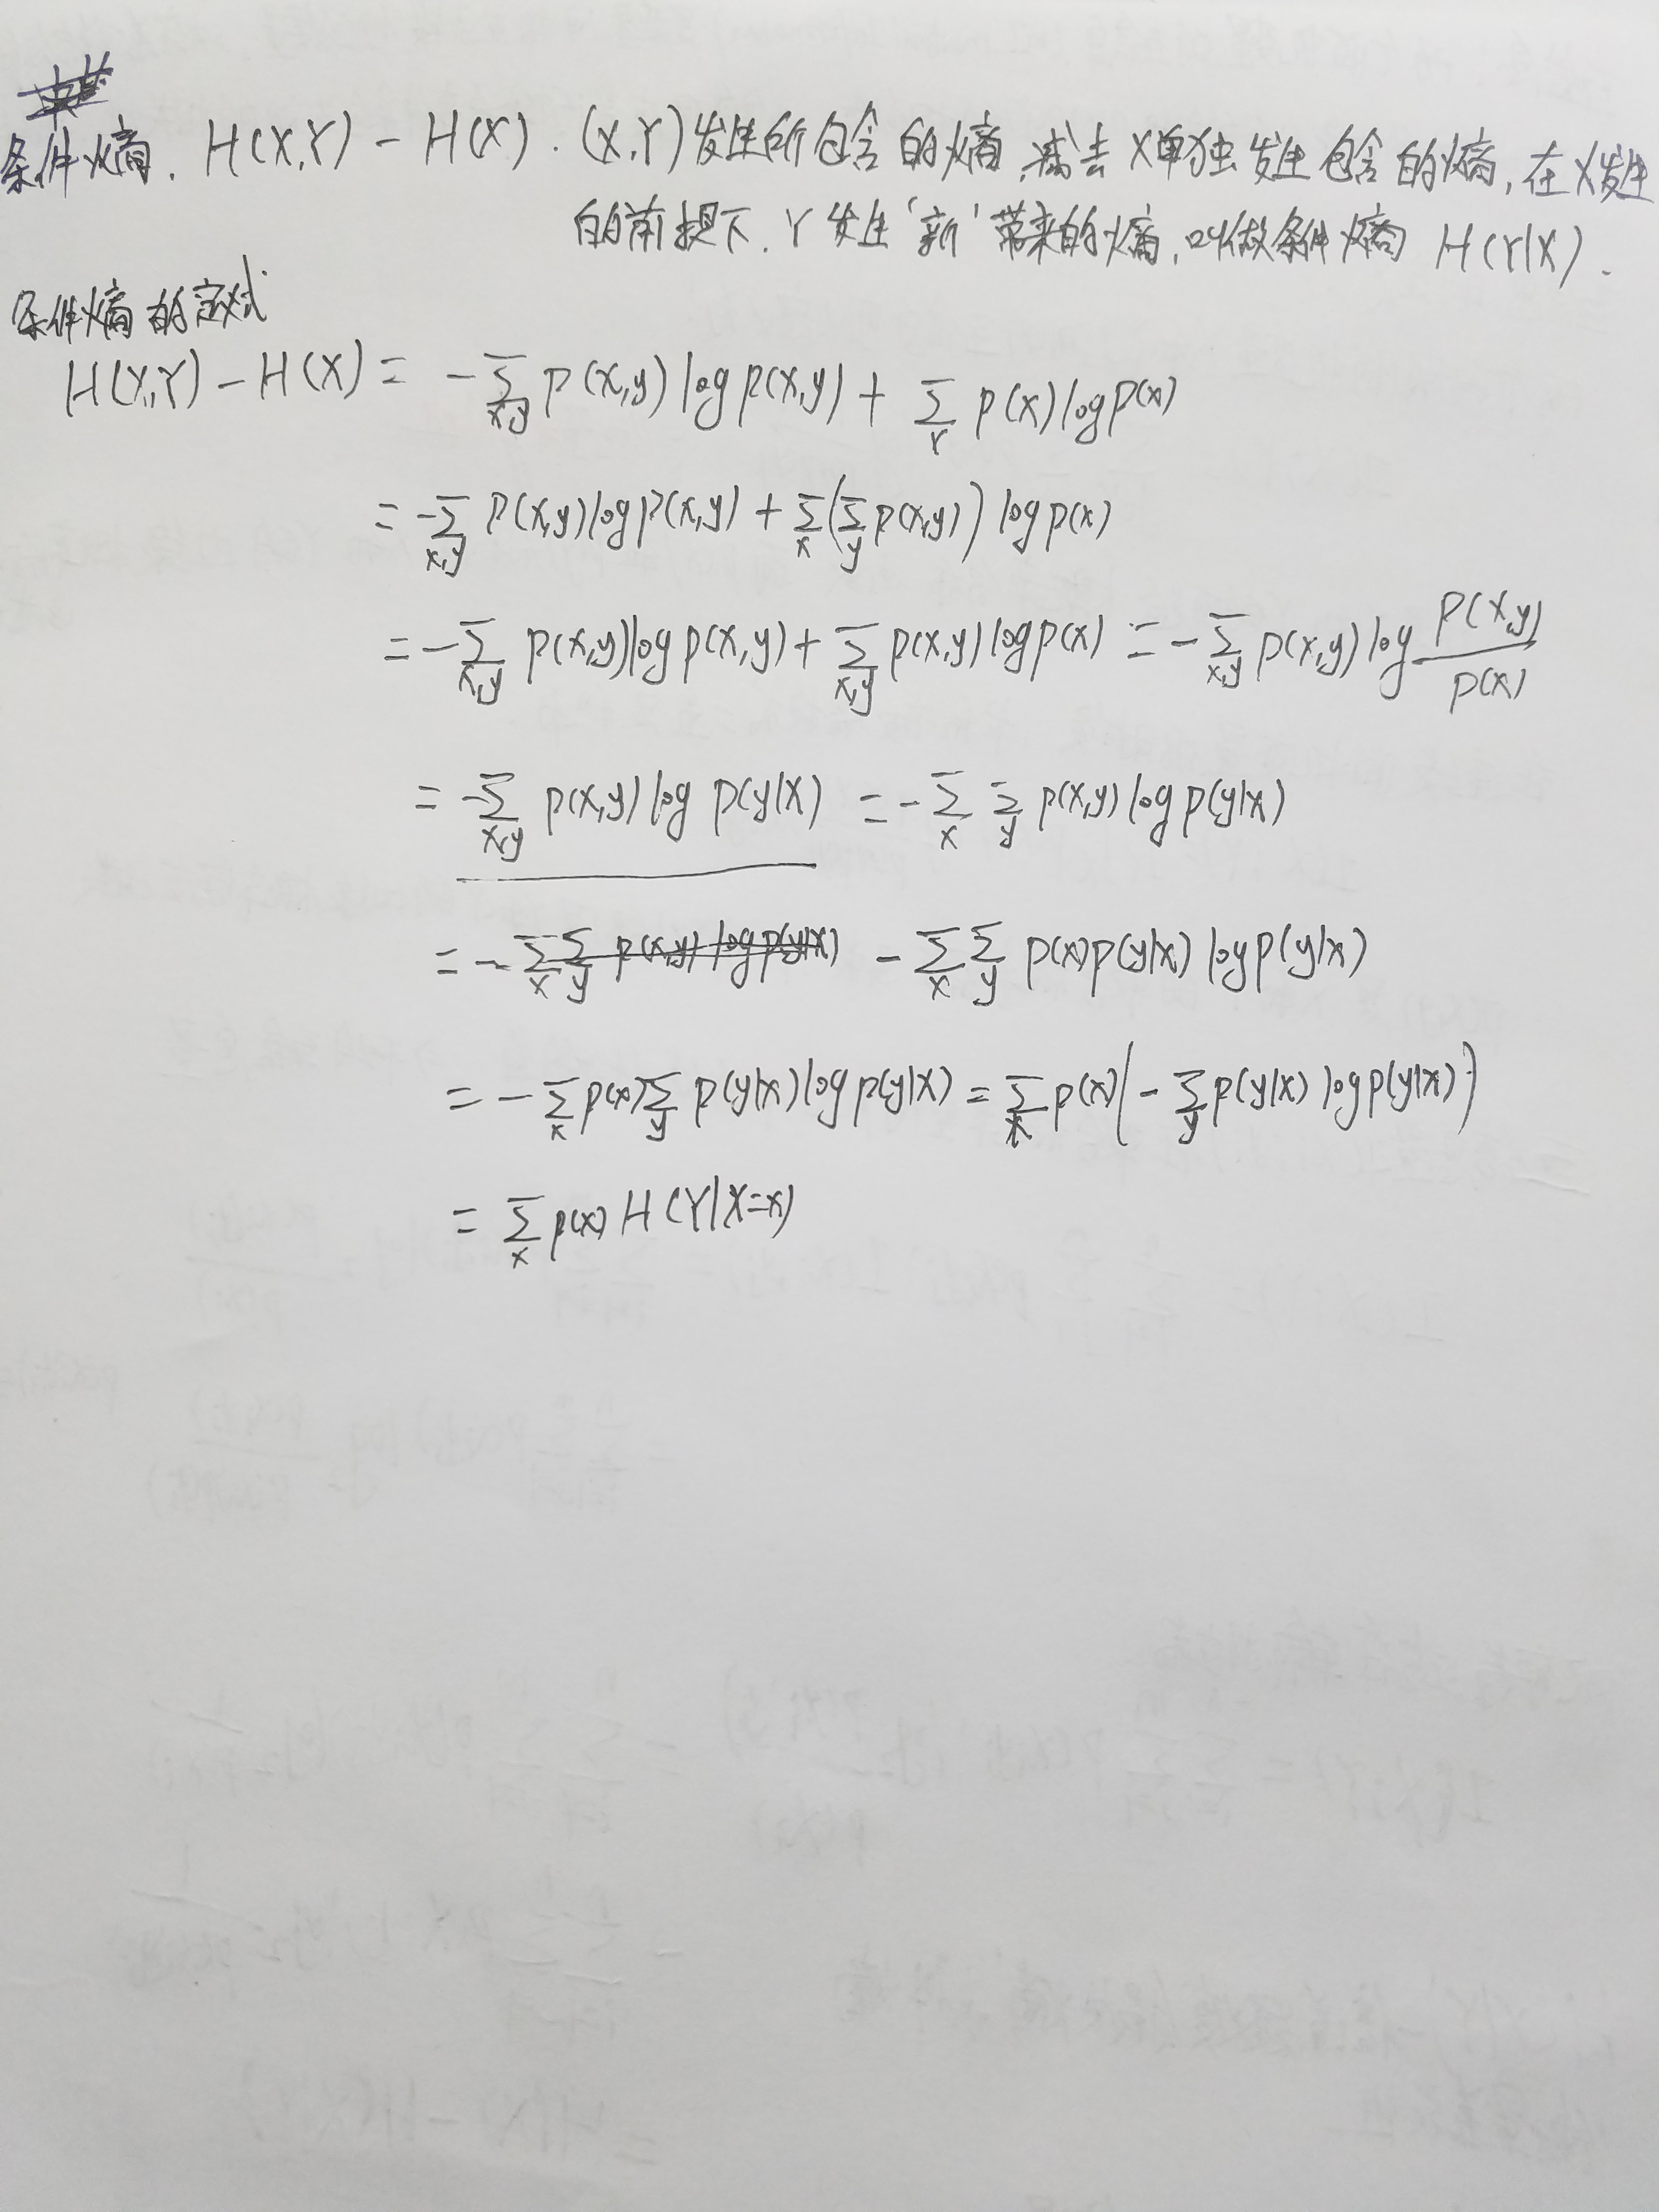 条件熵. H(X,Y) - H(X). (X,Y)发生所包含的熵,减去X单独发生包含的熵,在X发生
的前提下.Y发生'新'带来的熵,叫做条件熵 H(Y|X).
条件熵的定义式
H(X,Y) - H(X) = - ∑_{x,y} p(x,y) log p(x,y) + ∑_x p(x) log p(x)
= -∑_{x,y} p(x,y) log p(x,y) + ∑_x (∑_y p(x,y)) log p(x)
= -∑_{x,y} p(x,y) log p(x,y) + ∑_{x,y} p(x,y) log p(x) = -∑_{x,y} p(x,y) log \frac{p(x,y)}{p(x)}
= -∑_{x,y} p(x,y) log p(y|x) = -∑_x ∑_y p(x,y) log p(y|x)
= -∑_x ∑_y p(x,y) log p(y|x) - ∑_x ∑_y p(x)p(y|x) log p(y|x)
= -∑_x p(x) ∑_y p(y|x) log p(y|x) = ∑_x p(x) (-∑_y p(y|x) log p(y|x))
= ∑_x p(x) H(Y|X=x)